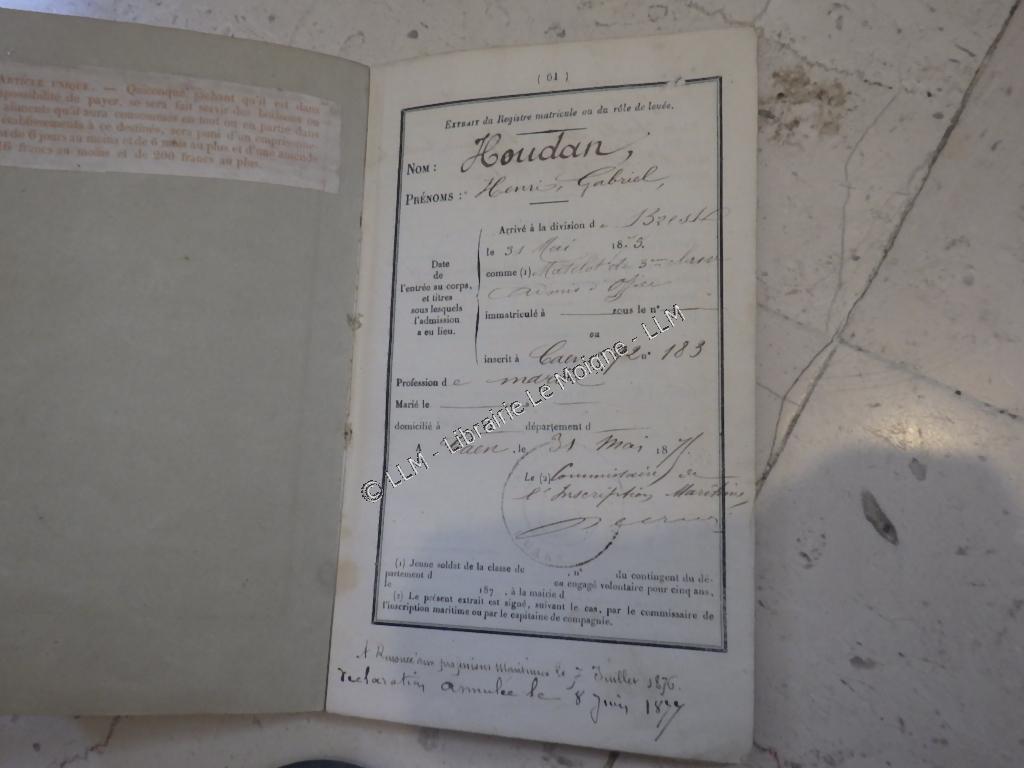 ARTICLE UNIQUE. — Quiconque, sachant qu'il est dans
l'impossibilité de payer, se sera fait servir des boissons ou
aliments qu'il aura consommés en tout ou en partie dans
établissements à ce destinés, sera puni d'un emprisonne-
ment de 6 jours au moins et de 6 mois au plus et d'une amende
16 francs au moins et de 200 francs au plus.
( 61 )
EXTRAIT du Registre matricule ou du rôle de levée.
NOM : Houdan,
PRÉNOMS : Henri, Gabriel,
Date
de
l'entrée au corps,
et titres
sous lesquels
l'admission
a eu lieu.
Arrivé à la division de Brest
le 31 Mai 187
comme (1) Matelot de 3me classe
d'office
immatriculé à sous le n°
ou
inscrit à Caen n° 183
Profession de
Marié le
domicilié à département d
A Caen, le 31 Mai 187
Le (2) Commissaire de
l'Inscription Maritime,
(1) Jeune soldat de la classe de , n° du contingent du dé-
partement d ou engagé volontaire pour cinq ans,
le 187 , à la mairie d
(2) Le présent extrait est signé, suivant le cas, par le commissaire de
l'inscription maritime ou par le capitaine de compagnie.
A Renoncé aux professions Maritimes le 7 Juillet 1876.
Déclaration annulée le 8 Juin 1877
© LLM - Librairie Le Moigne - LLM